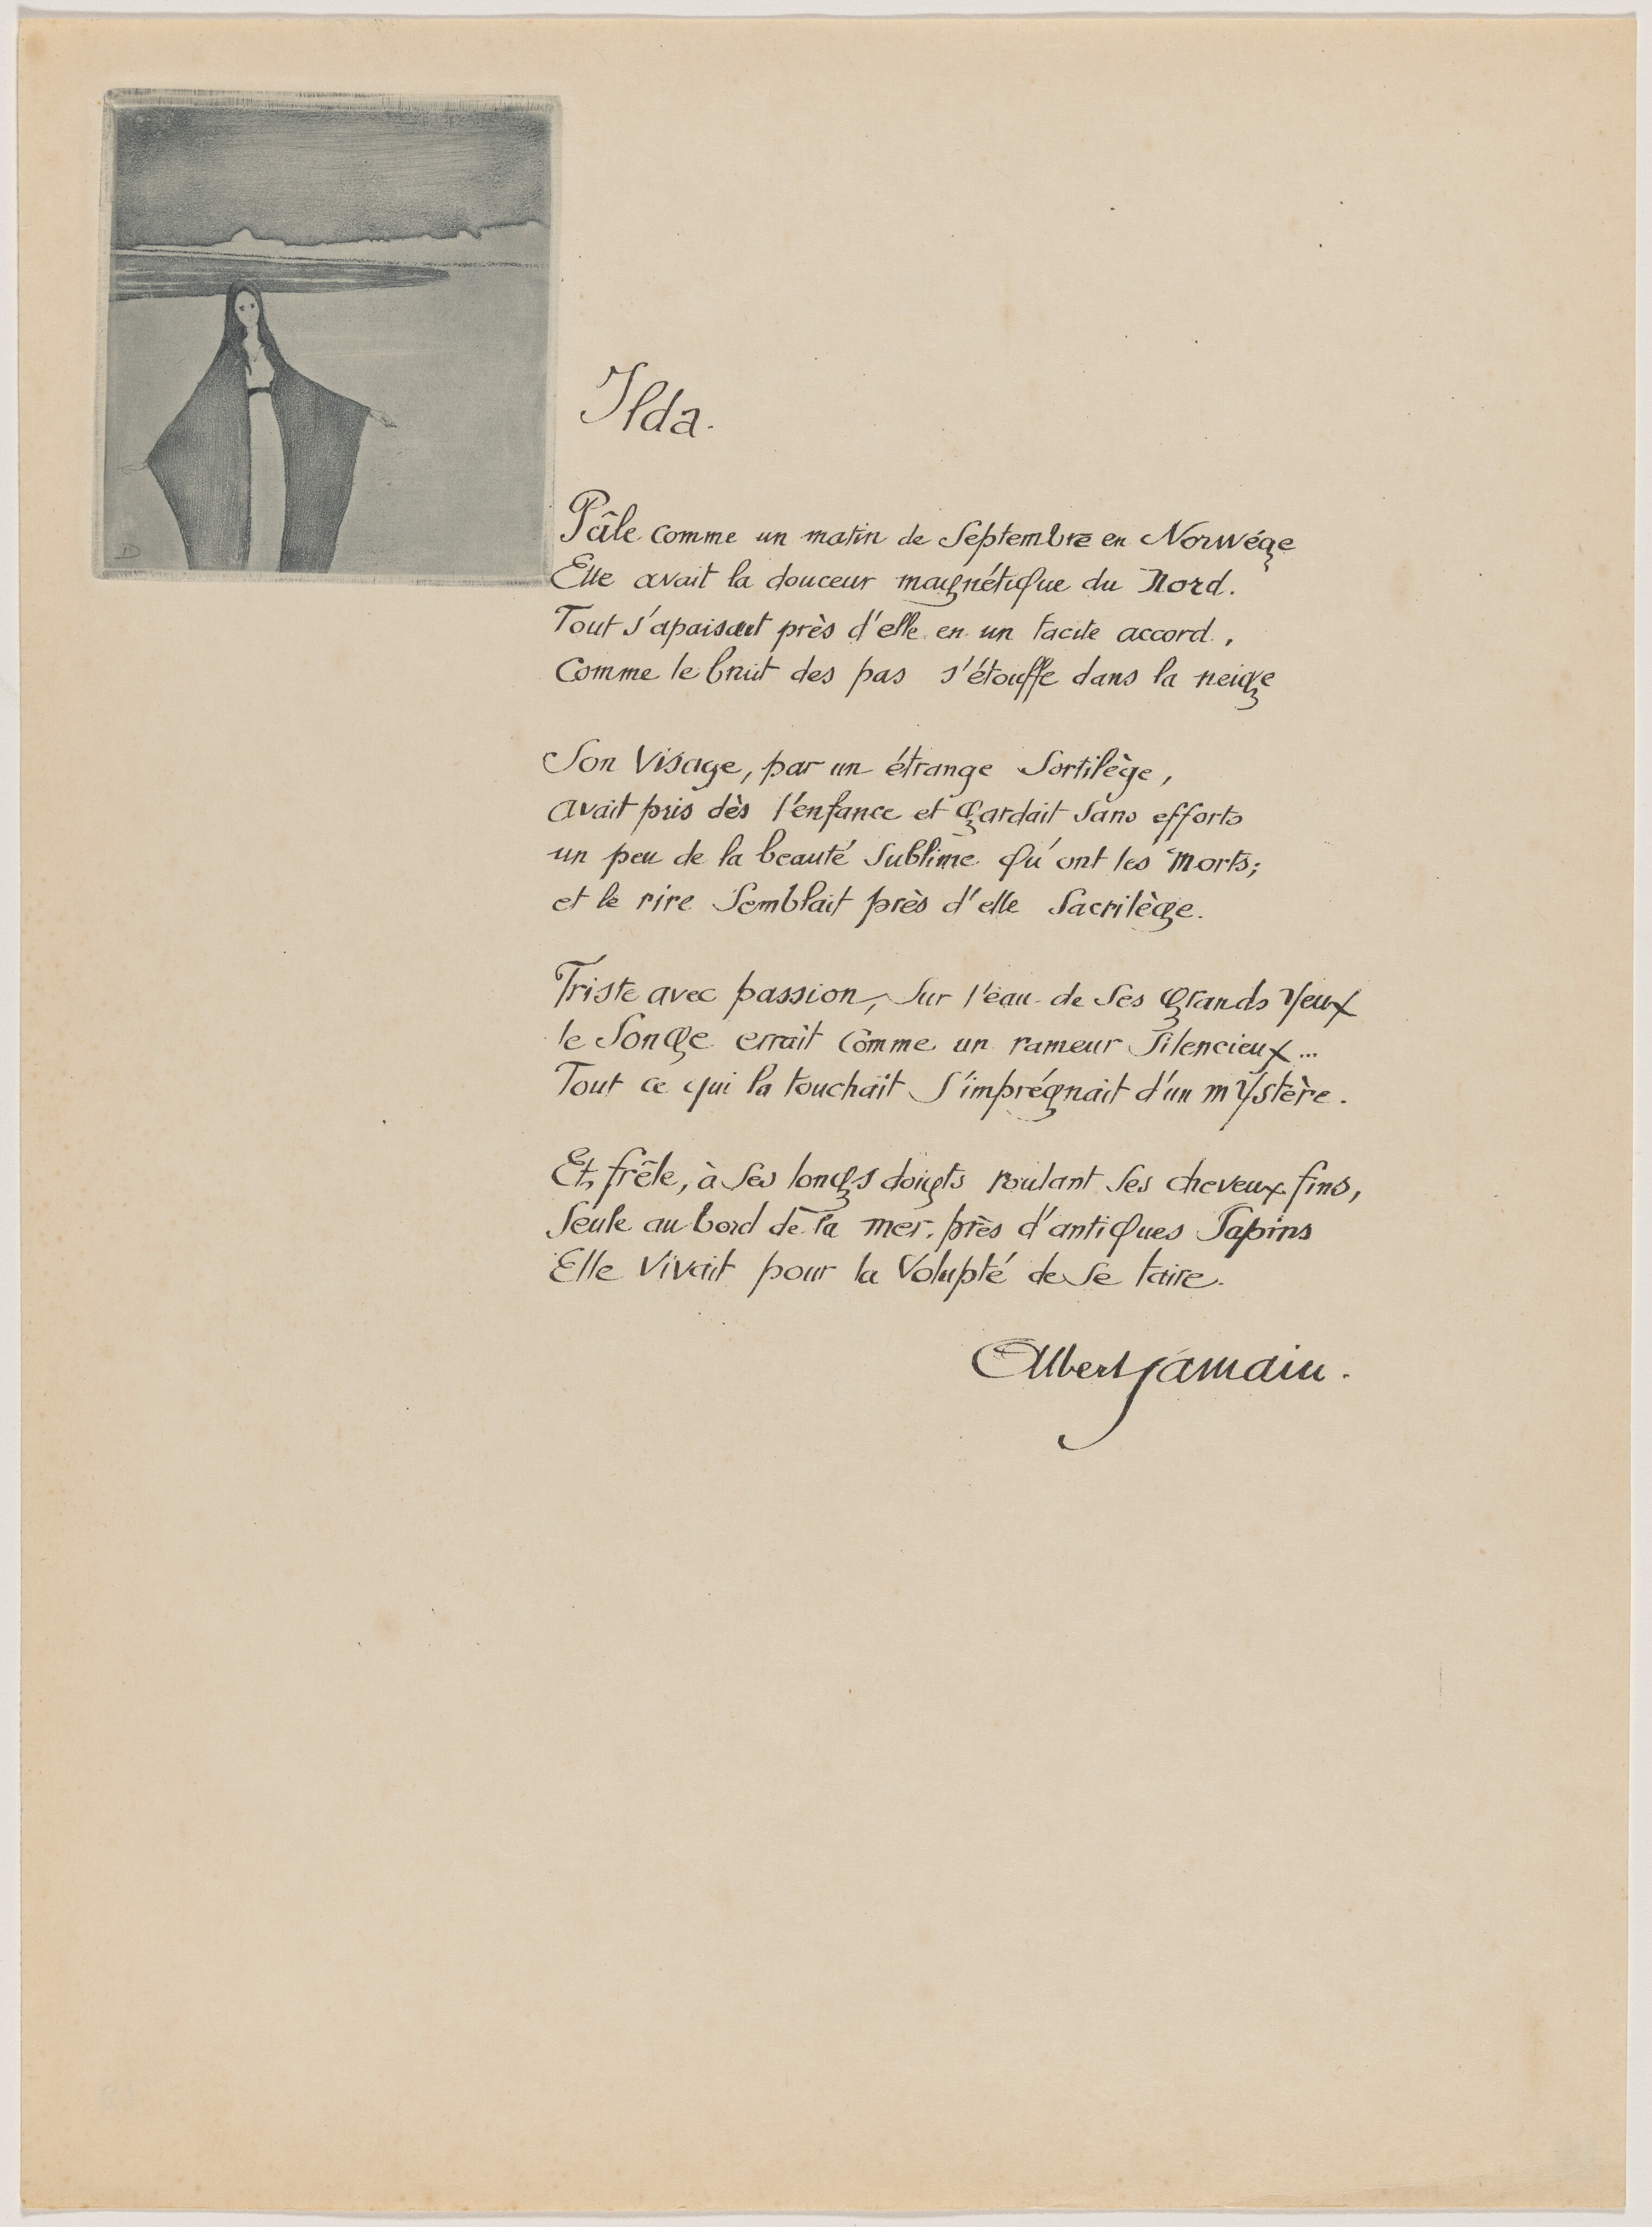 D
Ilda.
Pâle comme un matin de Septembre en Norwége
Elle avait la douceur magnétique du Nord.
Tout s'apaisait près d'elle en un facile accord,
Comme le bruit des pas s'étouffe dans la neige
Son Visage, par un étrange Sortilège,
avait pris dès l'enfance et gardait Sans efforts
un peu de la beauté Sublime qu'ont les Morts;
et le rire Semblait près d'elle Sacrilège.
Triste avec passion, Sur l'eau de Ses grands Yeux
le Songe errait Comme un rameur Silencieux...
Tout ce qui la touchait S'imprégnait d'un mYstère.
Et, frêle, à Ses longs doigts roulant Ses cheveux fins,
Seule au bord de la mer, près d'antiques Sapins
Elle Vivait pour la Volupté de Se taire.
Albert Samain.